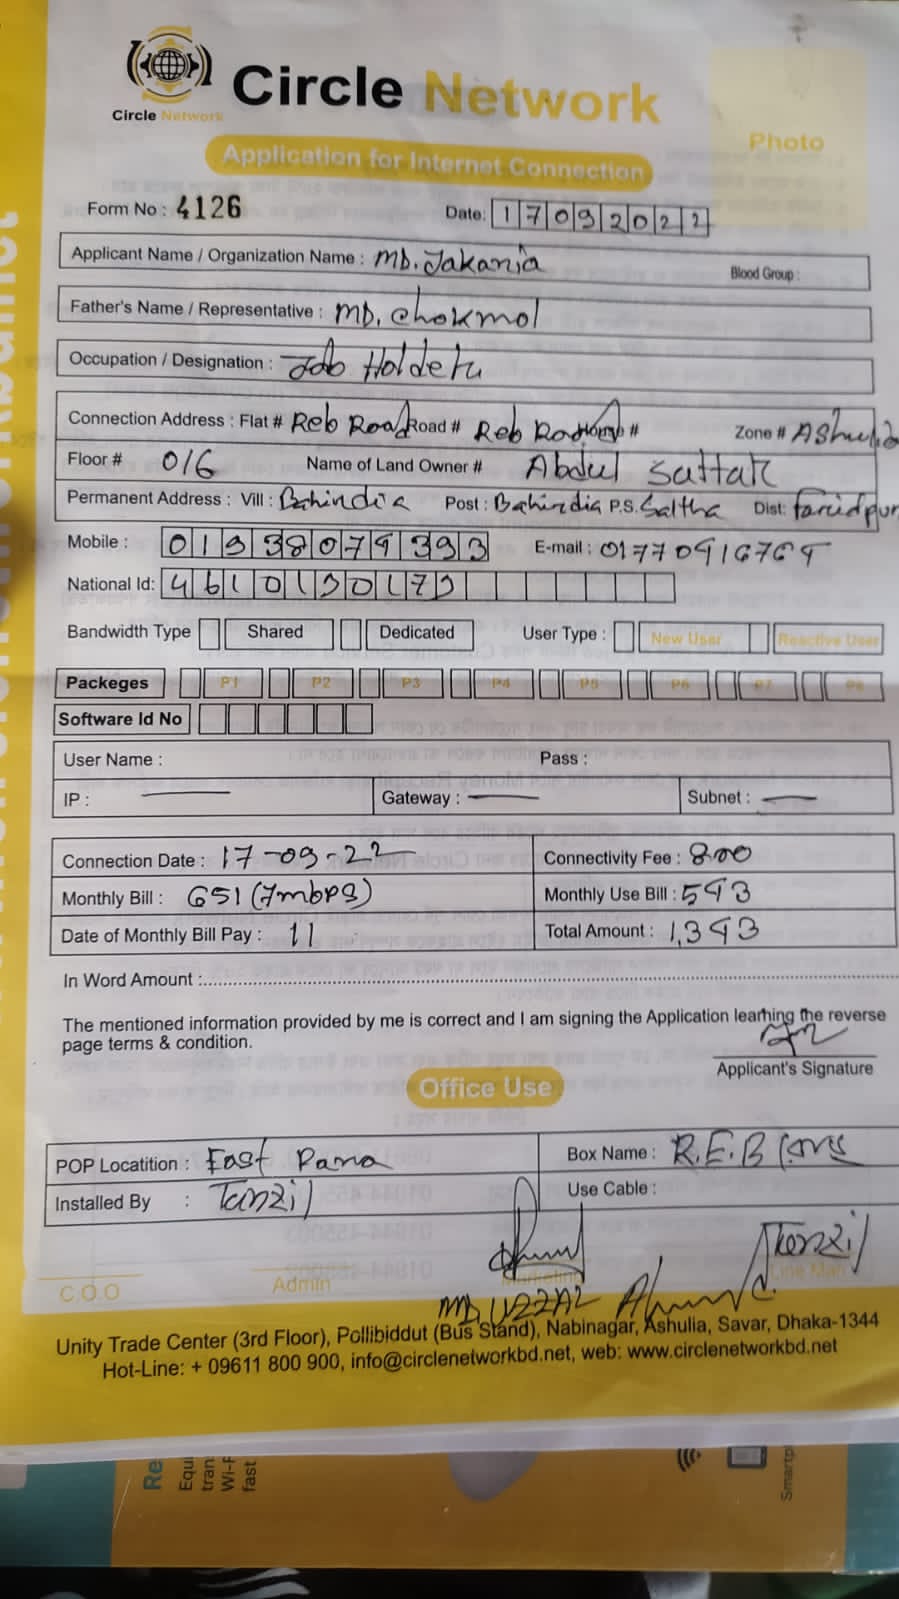 Circle Network
Circle Network
Photo
Application for Internet Connection
Form No : 4126 Date: 17092022
Applicant Name / Organization Name : MD. Jakaria Blood Group :
Father's Name / Representative : MD. Chokmol
Occupation / Designation : Job Holder
Connection Address : Flat # Reb Road Road # Reb Road # Zone # Ashulia
Floor # 016 Name of Land Owner # Abdul Sattar
Permanent Address : Vill : Bahirdia Post : Bahirdia P.S. Saltha Dist: Faridpur
Mobile : 01938079393 E-mail : 01770916769
National Id: 4610190173
Bandwidth Type Shared Dedicated User Type : New User Reactive User
Packeges P1 P2 P3 P4 P5 P6 P7 P8
Software Id No
User Name : Pass :
IP : Gateway : Subnet :
Connection Date : 17-09-22 Connectivity Fee : 800
Monthly Bill : 651 (7mbps) Monthly Use Bill : 593
Date of Monthly Bill Pay : 11 Total Amount : 1,393
In Word Amount :
The mentioned information provided by me is correct and I am signing the Application learning the reverse
page terms & condition.
Applicant's Signature
Office Use
POP Locatition : East Para Box Name : R.E.B
Installed By : Tanzil Use Cable :
Tenzil
C.O.O Admin Marketing Line Man
MD UZZAL
Unity Trade Center (3rd Floor), Pollibiddut (Bus Stand), Nabinagar, Ashulia, Savar, Dhaka-1344
Hot-Line: + 09611 800 900, info@circlenetworkbd.net, web: www.circlenetworkbd.net